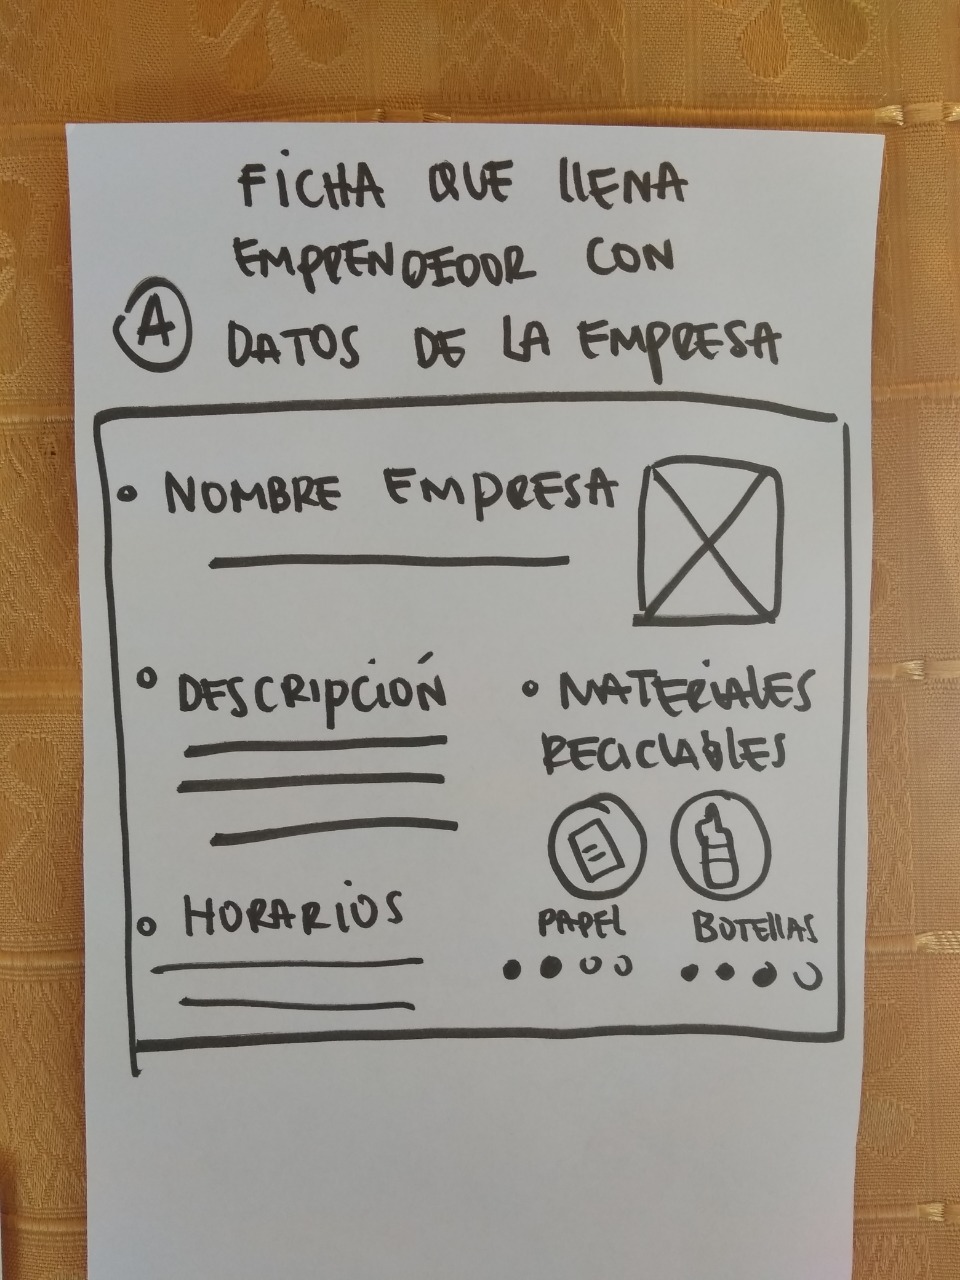 FICHA QUE LLENA
EMPRENDEDOR CON
A DATOS DE LA EMPRESA
• NOMBRE EMPRESA
• DESCRIPCIÓN
• MATERIALES
RECICLABLES
PAPEL
BOTELLAS
• HORARIOS